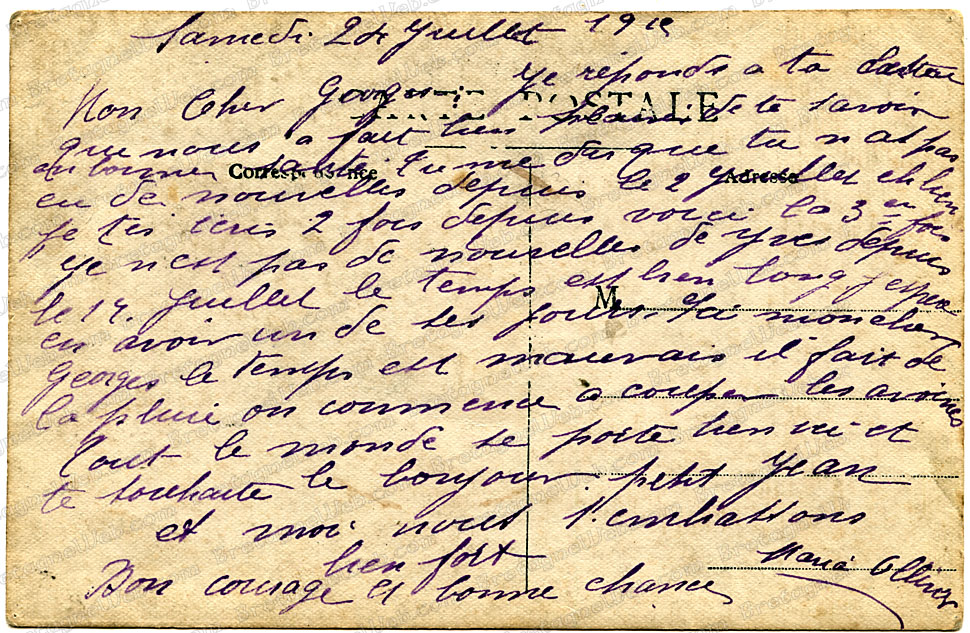 Samedi 24 Juillet 191
Mon Cher Georges Je réponds a ta
CARTE POSTALE
que nous a fait bien plaisir de te savoir
en bonne santé tu me dis que tu n'at pas
Correspondance
Adresse
eu de nouvelles depuis le 2 Juillet eh bien
je t'es écris 2 fois depuis voici la 3 en fois
Je n'est pas de nouvelles de Yves depuis
le 14 Juillet le temps est bien long J'espère
M
en avoir un de ses jours. Ici mon cher
Georges le temps est mauvais il fait de
la pluie on commence a couper les avoines
tout le monde se porte bien ici et
te souhaite le bonjour petit Jean
et moi nous t'embrassons
bien fort
Bon courage et bonne chance
Maria